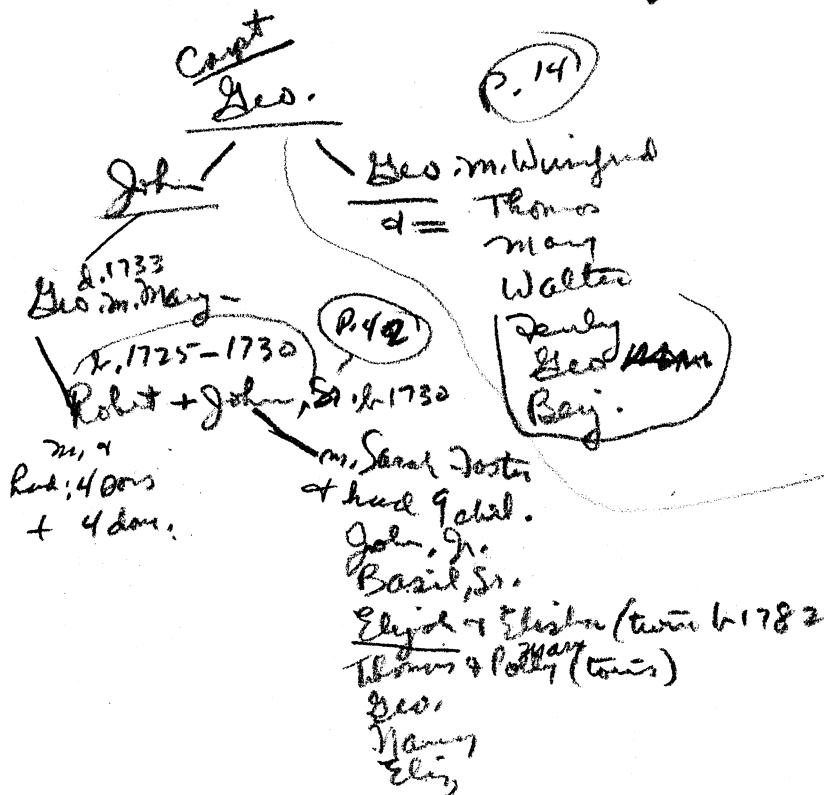 Capt
Geo.
P. 141
John
Geo. m. Winifred
d =
Thomas
Mary
Walter
Geo
Benj.
d. 1733
Geo. m. Mary -
b. 1725-1730
P. 42
Robert + John, Sr. b 1730
m, &
had: 4 sons
+ 4 dau.
m. Sarah Foster
& had 9 chil.
John, Jr.
Basil, Sr.
Elijah & Elisha (twins b 1782
Thomas & Polly Mary (twins)
Geo.
Nancy
Eliz